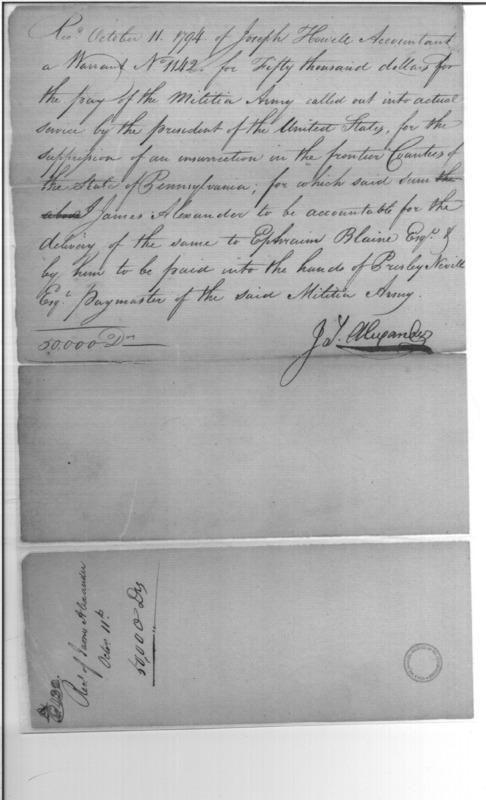 Recd. October 11. 1794. of Joseph Howell Accountant
a Warrant No. 1142. for Fifty thousand dollars for
the pay of the Militia Army called out into actual
service by the president of the United States, for the
suppression of an insurrection in the frontier Counties of
the State of Pennsylvania; for which said sum the
above I James Alexander to be accountable for the
delivery of the same to Ephraim Blaine Esqr. &
by him to be paid into the hands of Presley Nevill
Esqr. Paymaster of the said Militia Army.
50,000 Drs
Js. Alexander
Rect. of James Alexander
Octor. 11th
50,000 Drs